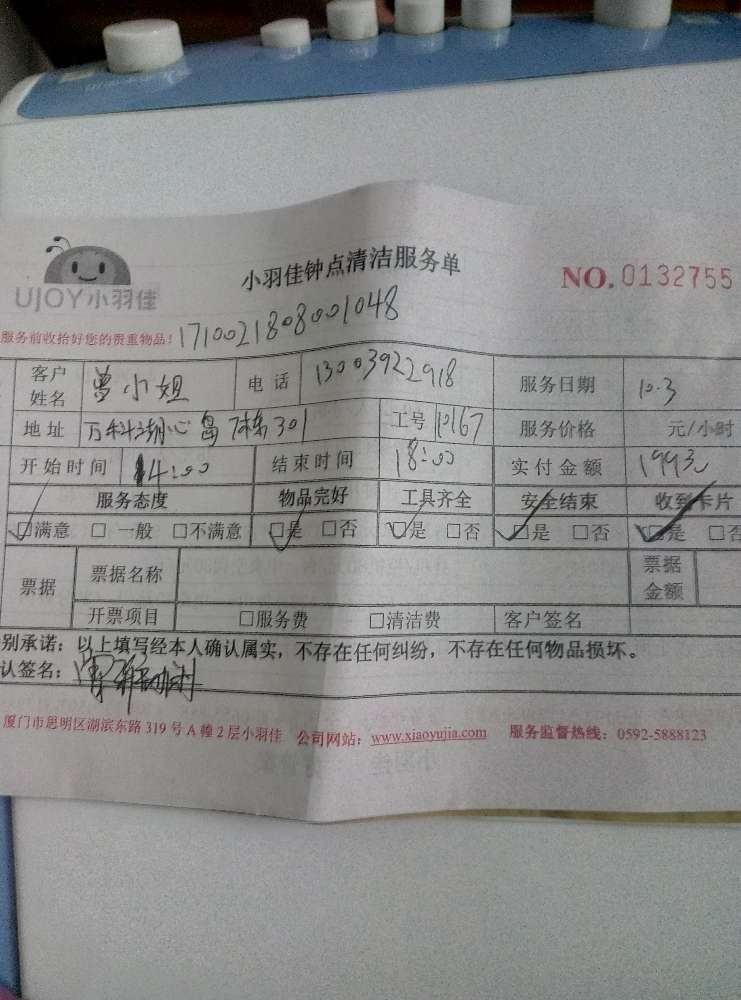 UJOY小羽佳
小羽佳钟点清洁服务单
NO.0132755
服务前收拾好您的贵重物品!
1710021808001048
客户姓名 曾小姐 电话 13003922918 服务日期 10.3
地址 万科湖心岛7栋301 工号 10167 服务价格 元/小时
开始时间 14:00 结束时间 18:00 实付金额
服务态度 物品完好 工具齐全 安全结束 收到卡片
☑满意 □一般 □不满意 ☑是 □否 ☑是 □否 ☑是 □否 ☑是 □否
票据 票据名称 票据金额
开票项目 □服务费 □清洁费 客户签名
别承诺:以上填写经本人确认属实,不存在任何纠纷,不存在任何物品损坏。
认签名:
厦门市思明区湖滨东路319号A幢2层小羽佳 公司网站:www.xiaoyujia.com 服务监督热线:0592-5888123